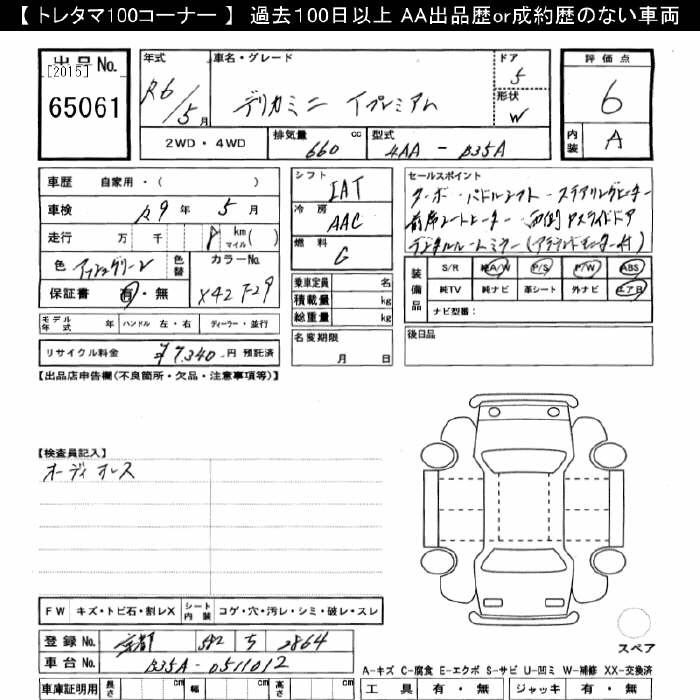 【 トレタマ100コーナー 】 過去100日以上 AA出品歴or成約歴のない車両
出品No.
[2015]
65061
年式
R6/5月
車名・グレード
デリカミニ Tプレミアム
ドア
5
形状
W
評価点
6
内装
A
2WD・4WD
排気量 660 cc
型式 4AA - B35A
車歴 自家用・( )
車検 R9 年 5 月
走行 万 千 8 km マイル( )
色 アッシュグリーン 色替
カラーNo. X42 F29
保証書 有・無
シフト IAT
冷房 AAC
燃料 G
乗車定員 名
積載量 kg
総重量 kg
セールスポイント
ターボ・パドルシフト・ステアリングヒーター
前席シートヒーター・両側Pスライドドア
デジタルルームミラー(アラウンドモニター付)
装備品
S/R 純A/W P/S P/W ABS
純TV 純ナビ 革シート 外ナビ エアB
ナビ型番:
モデル年式 年 ハンドル 左・右 ディーラー・並行
名変期限 月 日
後日品
リサイクル料金 ¥7,340 円 預託済
【出品店申告欄(不良箇所・欠品・注意事項等)】
【検査員記入】
オーディオレス
FW キズ・トビ石・割レX
シート内装 コゲ・穴・汚レ・シミ・破レ・スレ
登録No. 京都 582 ち 2864
車台No. B35A-0511012
スペア
A-キズ C-腐食 E-エクボ S-サビ U-凹ミ W-補修 XX-交換済
車庫証明用 長さ cm 幅 cm 高さ cm
工具 有・無 ジャッキ 有・無